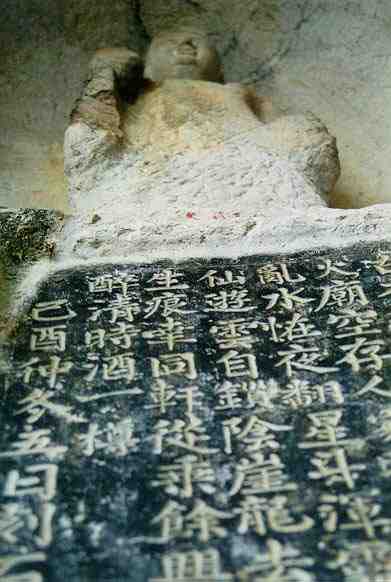 火廟空存人
亂水恠夜翻星斗渾
仙遊雲自鎖陰崖龍去
生痕幸同軒從乘餘興
醉清時酒一樽
己酉仲冬五日刻石